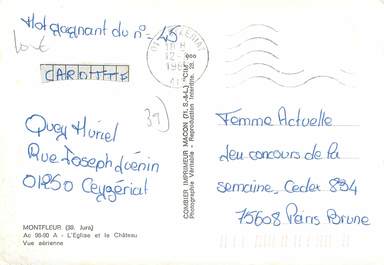 Mot gagnant du n° 45
CAROTTE
Quey Muriel
Rue Joseph Guénin
01250 Ceyzériat
39
MONTFLEUR (39. Jura)
Ac 90-90 A - L'Église et le Château
Vue aérienne
COMBIER IMPRIMEUR MACON (71. S.-&-L.) "CIM"
Photographie Véritable - Reproduction Interdite.
Femme Actuelle
Jeu concours de la
semaine, Cedex 834
75608 Paris Brune